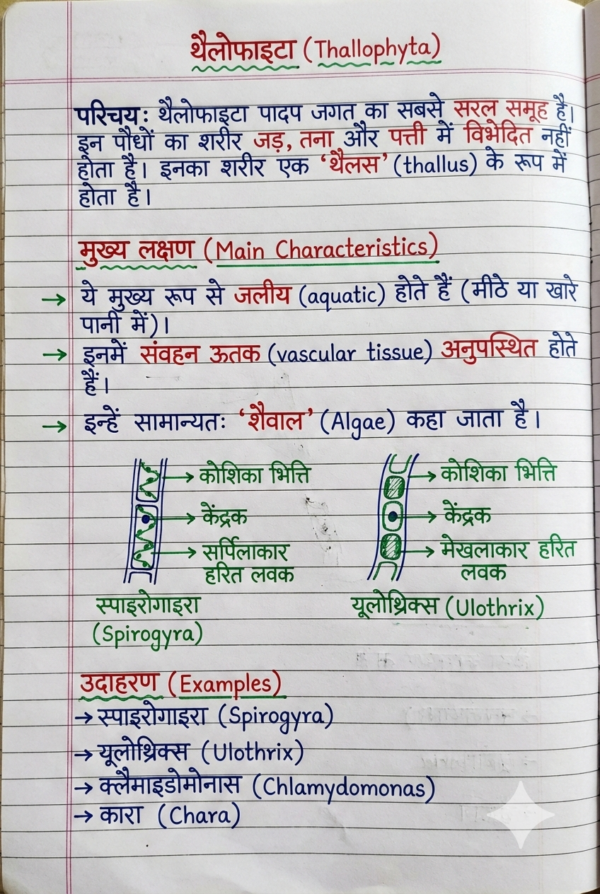 थैलोफाइटा (Thallophyta)
परिचय: थैलोफाइटा पादप जगत का सबसे सरल समूह है।
इन पौधों का शरीर जड़, तना और पत्ती में विभेदित नहीं
होता है। इनका शरीर एक ‘थैलस’ (thallus) के रूप में
होता है।
मुख्य लक्षण (Main Characteristics)
→ ये मुख्य रूप से जलीय (aquatic) होते हैं (मीठे या खारे
पानी में)।
→ इनमें संवहन ऊतक (vascular tissue) अनुपस्थित होते
हैं।
→ इन्हें सामान्यतः ‘शैवाल’ (Algae) कहा जाता है।
→ कोशिका भित्ति
→ केंद्रक
→ सर्पिलाकार
हरित लवक
स्पाइरोगाइरा
(Spirogyra)
→ कोशिका भित्ति
→ केंद्रक
→ मेखलाकार हरित
लवक
यूलोथ्रिक्स (Ulothrix)
उदाहरण (Examples)
→ स्पाइरोगाइरा (Spirogyra)
→ यूलोथ्रिक्स (Ulothrix)
→ क्लैमाइडोमोनास (Chlamydomonas)
→ कारा (Chara)